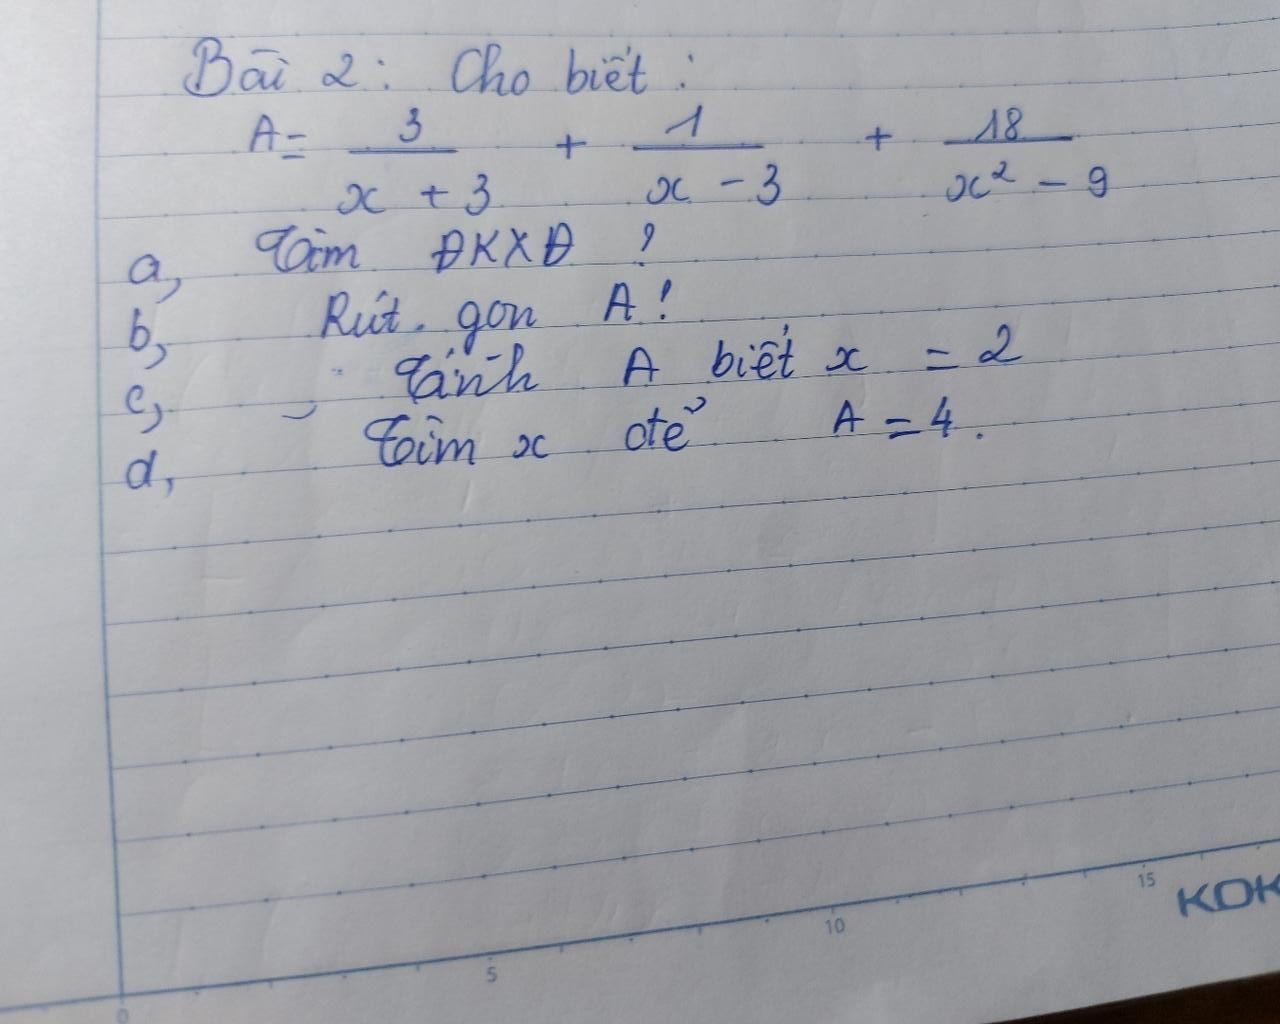 Bài 2: Cho biết:
A = 3/(x + 3) + 1/(x - 3) + 18/(x² - 9)
a, Tìm ĐKXĐ?
b, Rút gọn A!
c, Tính A biết x = 2
d, Tìm x để A = 4.
0 5 10 15 KOK